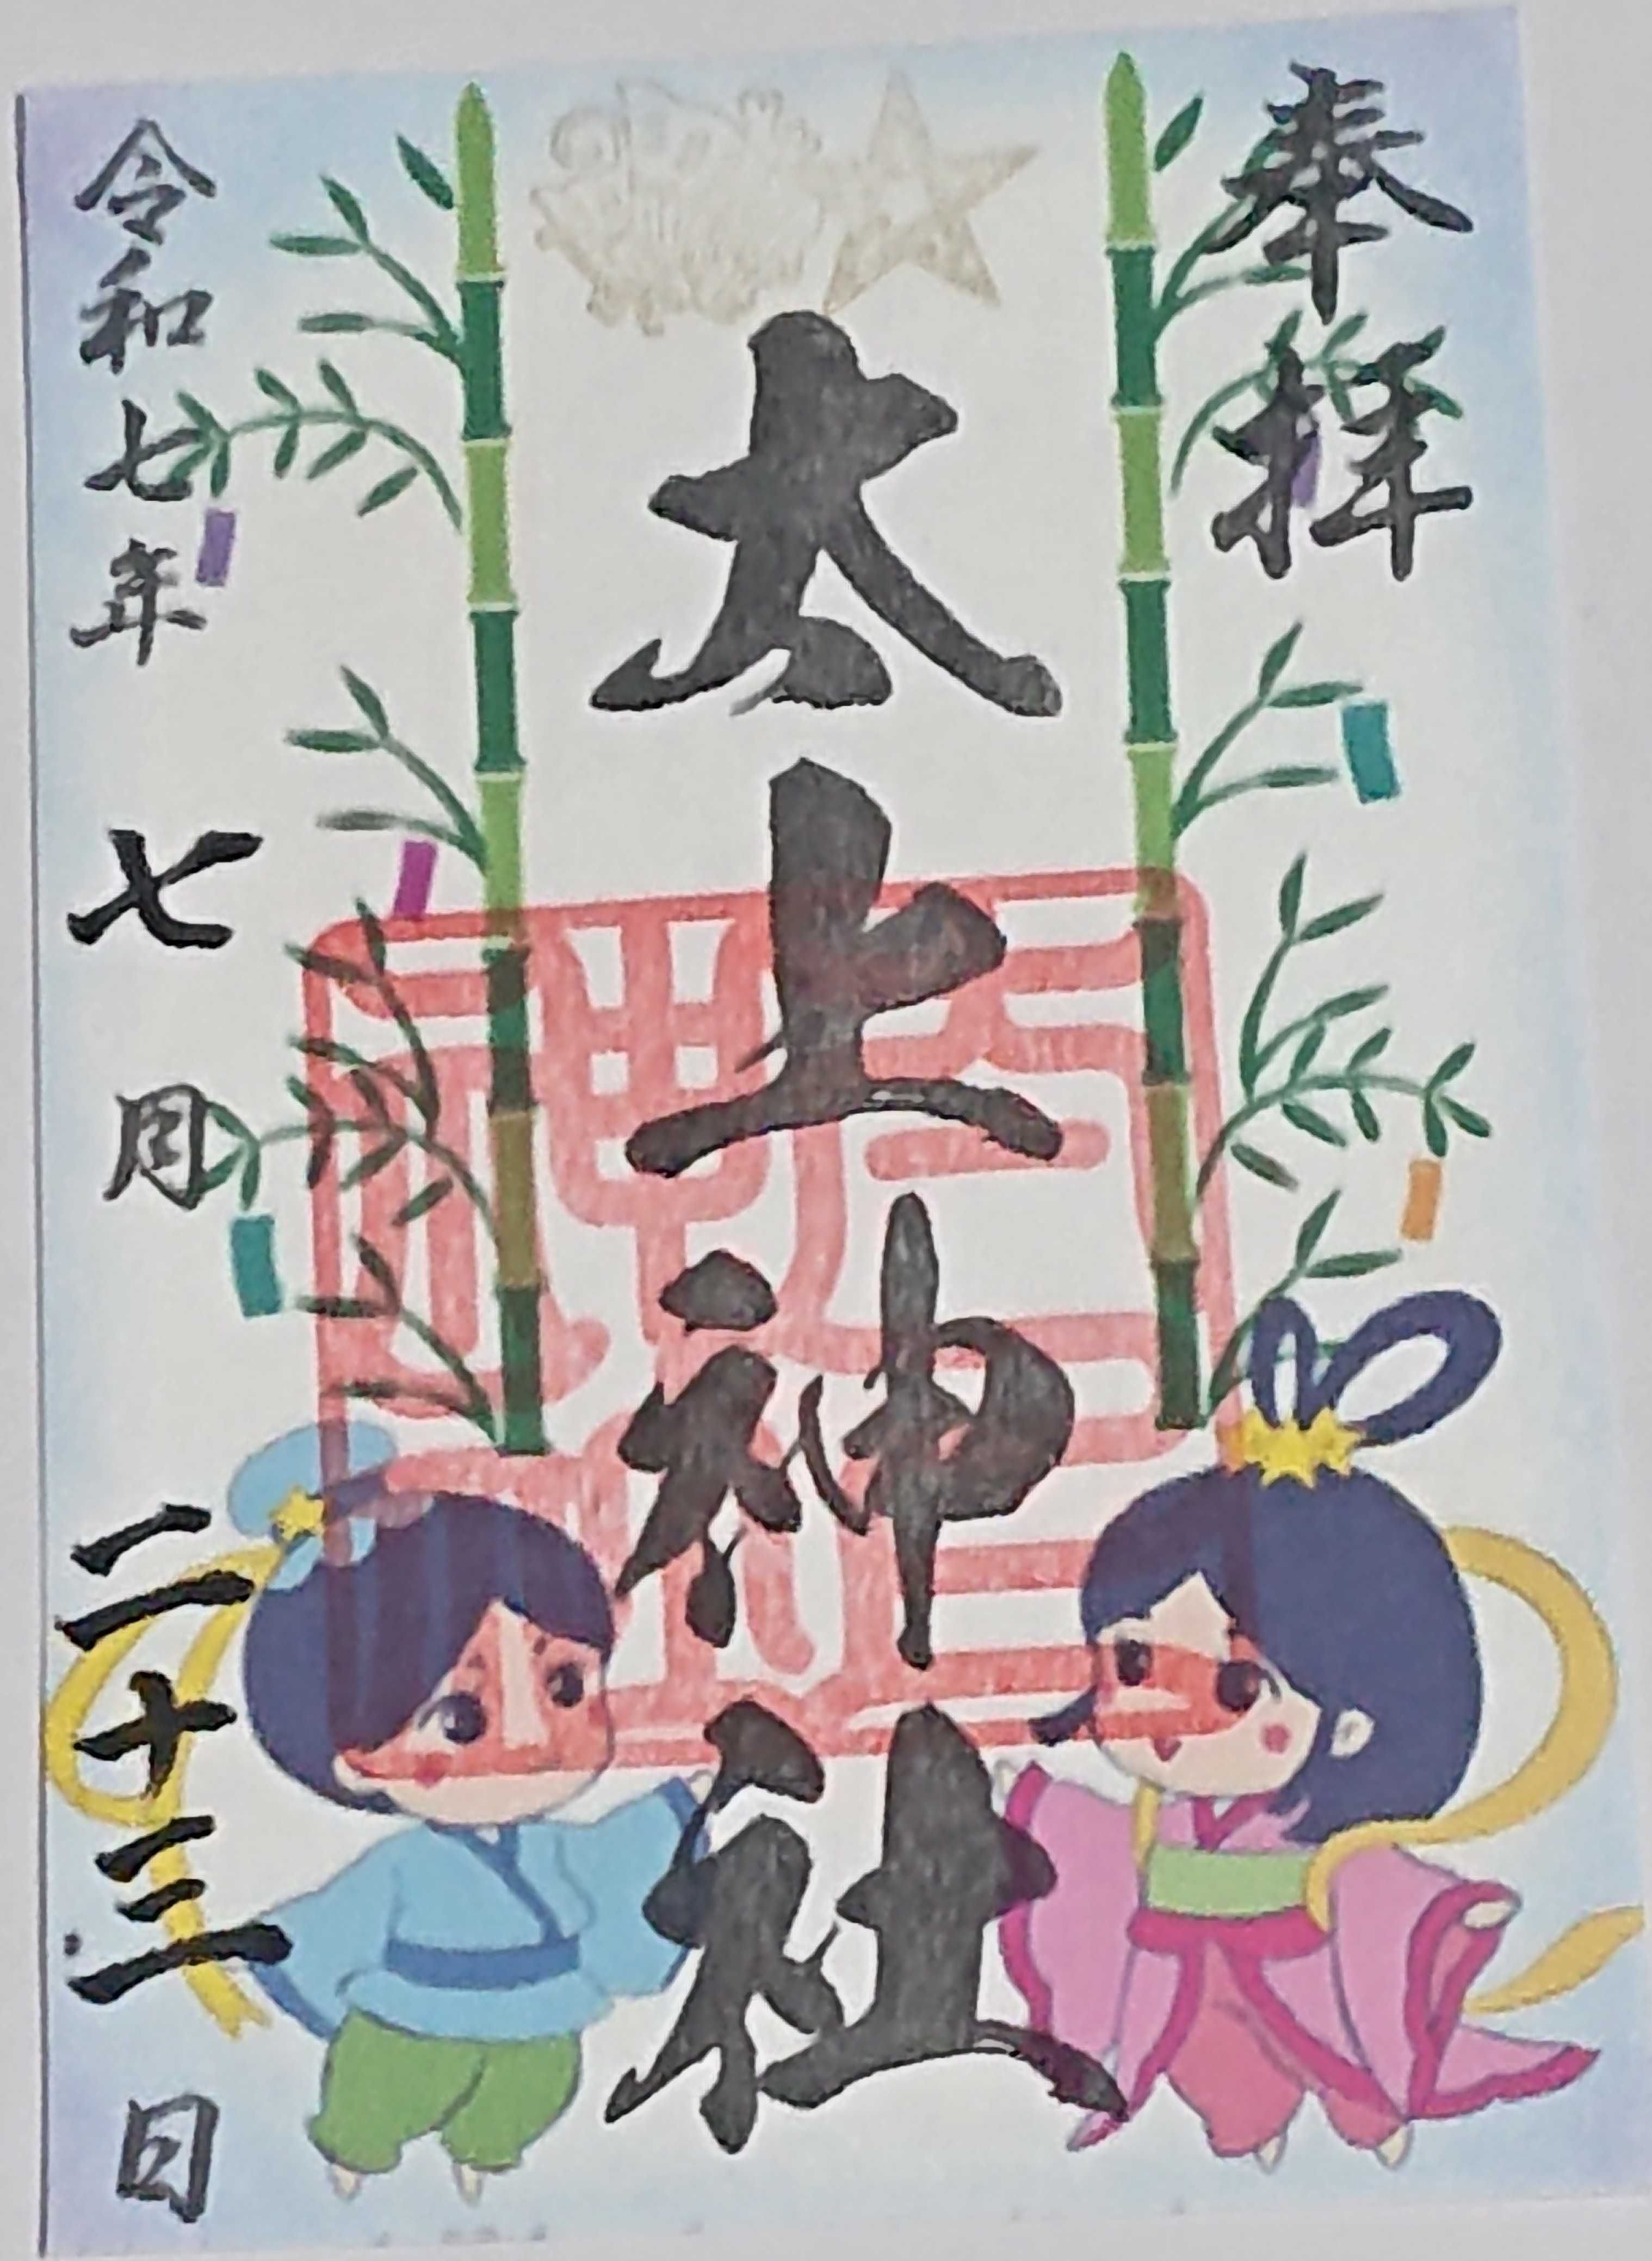 奉拝
太上神社
令和七年 七月 二十三日